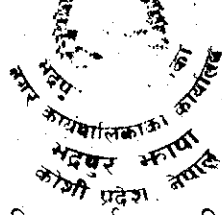 भद्रपु
का
नगर कार्यपालिकाको कार्यालय
भद्रपुर झापा
कोशी प्रदेश नेपाल